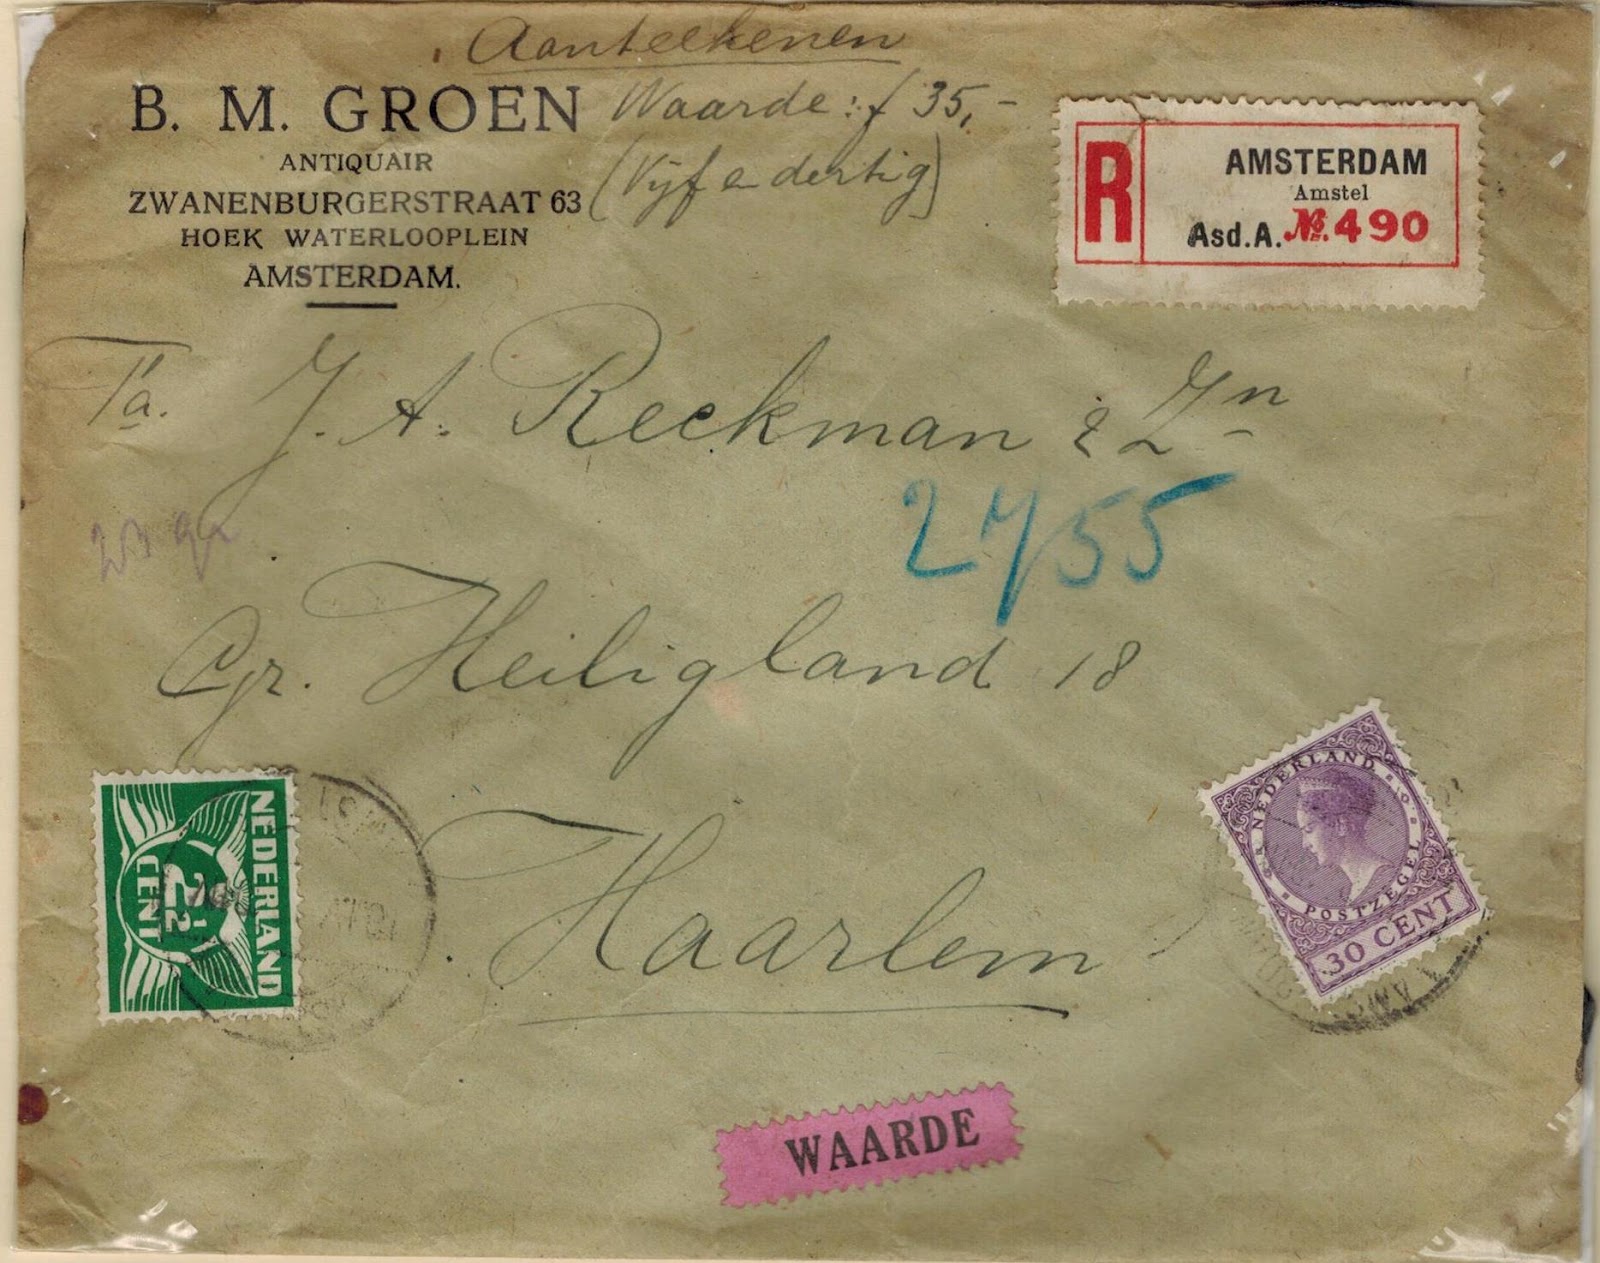 Aanteekenen
B. M. GROEN
Waarde: f 35,-
ANTIQUAIR
(Vijf en dertig)
ZWANENBURGERSTRAAT 63
HOEK WATERLOOPLEIN
AMSTERDAM.
R
AMSTERDAM
Amstel
Asd.A. №. 490
Fa. J. A. Reekman & Zn
2755
Gr. Heiligland 18
Haarlem
NEDERLAND
2½
CENT
NEDERLAND
POSTZEGEL
30 CENT
WAARDE